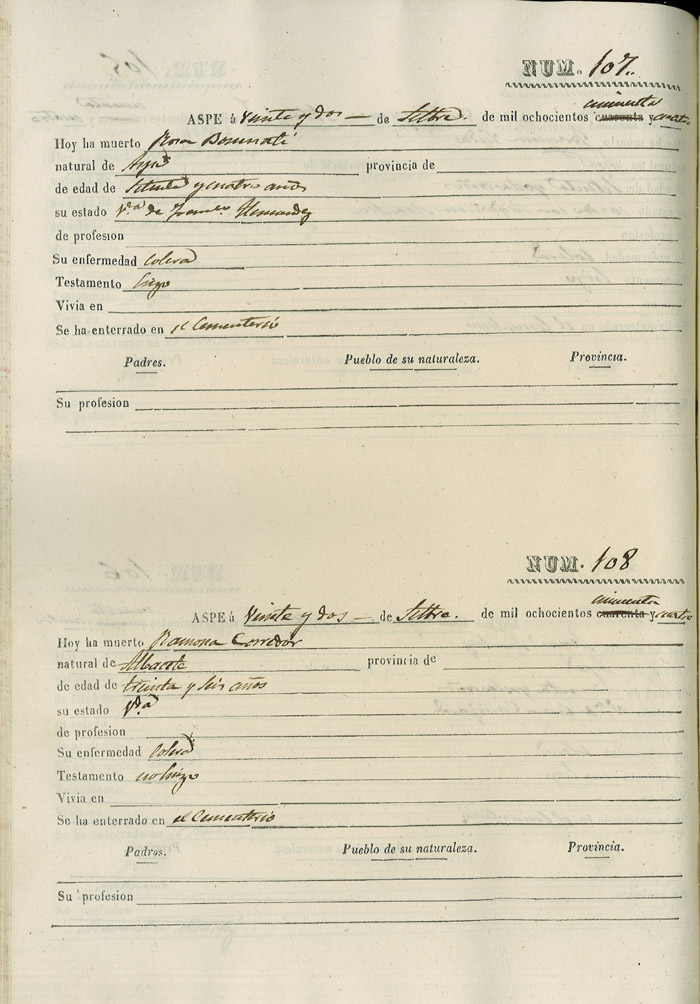 NUM. 107.
cincuenta
ASPE á Veinte y dos — de Setbre. de mil ochocientos cuarenta y cuatro
Hoy ha muerto Rosa Bonmati
natural de provincia de
de edad de Setenta y cuatro años
su estado V.da de Hernandez
de profesion
Su enfermedad Colera
Testamento hizo
Vivia en
Se ha enterrado en el Cementerio
Padres. Pueblo de su naturaleza. Provincia.
Su profesion
NUM. 108
cincuenta
ASPE á Veinte y dos — de Setbre. de mil ochocientos cuarenta y cuatro
Hoy ha muerto Ramona Corredor
natural de Albacete provincia de
de edad de treinta y seis años
su estado V.da
de profesion
Su enfermedad Colera
Testamento no hizo
Vivia en
Se ha enterrado en el Cementerio
Padres. Pueblo de su naturaleza. Provincia.
Su profesion